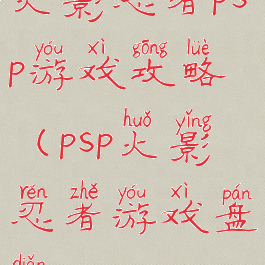 火影忍者ps
yóu xì gōng lüè
p游戏攻略
huǒ yǐng
（psp火影
rěn zhě yóu xì pán
忍者游戏盘
diǎn